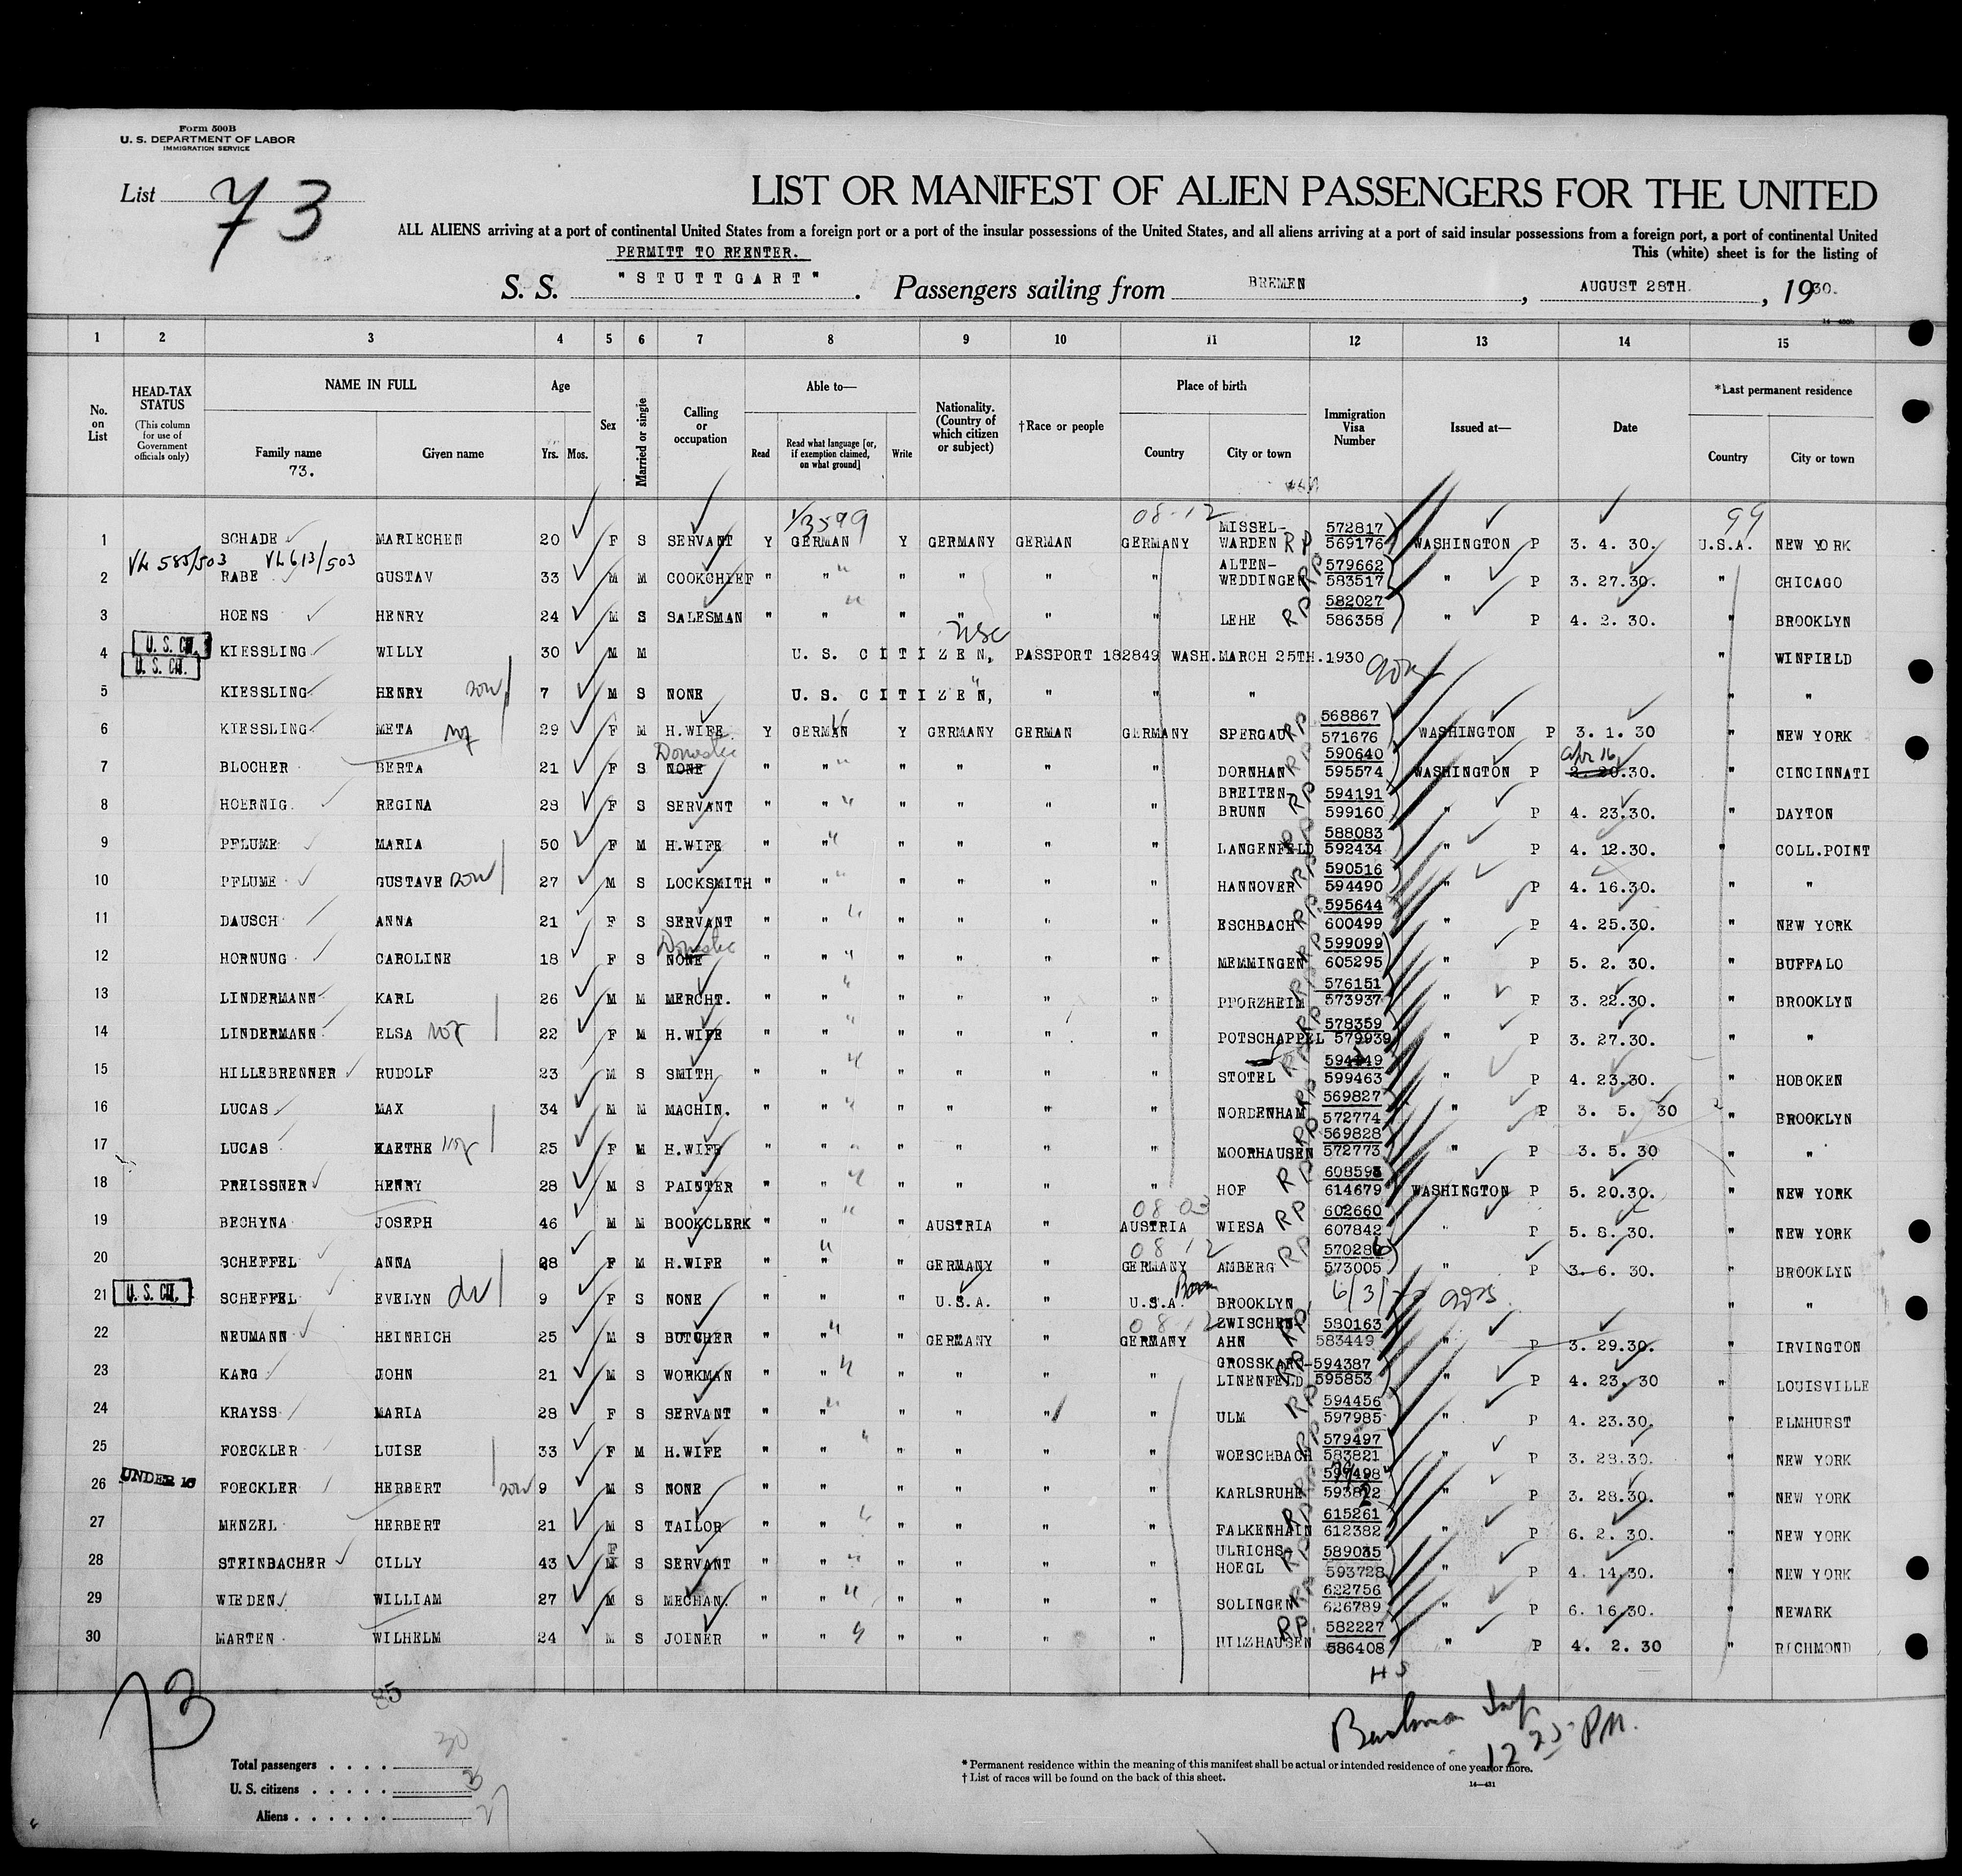 Form 500B
U. S. DEPARTMENT OF LABOR
IMMIGRATION SERVICE
List 73
LIST OR MANIFEST OF ALIEN PASSENGERS FOR THE UNITED
ALL ALIENS arriving at a port of continental United States from a foreign port or a port of the insular possessions of the United States, and all aliens arriving at a port of said insular possessions from a foreign port, a port of continental United
This (white) sheet is for the listing of
PERMITT TO REENTER.
S. S. "STUTTGART". Passengers sailing from BREMEN, AUGUST 28TH., 1930.
1 2 3 4 5 6 7 8 9 10 11 12 13 14 15
No. on List
HEAD-TAX STATUS (This column for use of Government officials only)
NAME IN FULL Family name Given name
73.
Age Yrs. Mos.
Sex
Married or single
Calling or occupation
Able to— Read Read what language [or, if exemption claimed, on what ground] Write
Nationality. (Country of which citizen or subject)
†Race or people
Place of birth Country City or town
Immigration Visa Number
Issued at—
Date
*Last permanent residence Country City or town
08-12 99
1 SCHADE MARIECHEN 20 F S SERVANT Y GERMAN Y GERMANY GERMAN GERMANY MISSEL-WARDEN RP 572817 569176 WASHINGTON P 3. 4. 30. U.S.A. NEW YORK
2 RABE GUSTAV 33 M M COOKCHIEF " " " " " " ALTEN-WEDDINGEN RP 579662 583517 " P 3. 27.30. " CHICAGO
3 HOENS HENRY 24 M S SALESMAN " " " " " " LEHE RP 582027 586358 " P 4. 2. 30. " BROOKLYN
usc
4 U. S. CIT. U. S. CIT. KIESSLING WILLY 30 M M U. S. CITIZEN, PASSPORT 182849 WASH.MARCH 25TH.1930 " WINFIELD
5 KIESSLING HENRY son 7 M S NONE U. S. CITIZEN, " " " " "
6 KIESSLING META 29 F M H.WIFE Y GERMAN Y GERMANY GERMAN GERMANY SPERGAU RP 568867 571676 WASHINGTON P 3. 1. 30 " NEW YORK
7 BLOCHER BERTA 21 F S NONE Domestic " " " " " " DORNHAN RP 590640 595574 WASHINGTON P Apr 16 .30. " CINCINNATI
8 HOERNIG. REGINA 28 F S SERVANT " " " " " " BREITEN-BRUNN RP 594191 599160 " P 4. 23.30. " DAYTON
9 PFLUME MARIA 50 F M H.WIFE " " " " " " LANGENFELD RP 588083 592434 " P 4. 12.30. " COLL.POINT
10 PFLUME GUSTAVE son 27 M S LOCKSMITH " " " " " " HANNOVER RP 590516 594490 " P 4. 16.30. " "
11 DAUSCH ANNA 21 F S SERVANT " " " " " " ESCHBACH RP 595644 600499 " P 4. 25.30. " NEW YORK
12 HORNUNG CAROLINE 18 F S NONE Domestic " " " " " " MEMMINGEN RP 599099 605295 " P 5. 2. 30. " BUFFALO
13 LINDERMANN KARL 26 M M MERCHT. " " " " " " PFORZHEIM RP 576151 573937 " P 3. 22.30. " BROOKLYN
14 LINDERMANN ELSA 22 F M H.WIFE " " " " " " POTSCHAPPEL RP 578359 579939 " P 3. 27.30. " "
15 HILLEBRENNER RUDOLF 23 M S SMITH " " " " " " STOTEL RP 599463 " P 4. 23.30. " HOBOKEN
16 LUCAS MAX 34 M M MACHIN. " " " " " " NORDENHAM RP 569827 572774 " P 3. 5. 30 " BROOKLYN
17 LUCAS KAETHE 25 F M H.WIFE " " " " " " MOORHAUSEN RP 569828 572773 " P 3. 5. 30 " "
18 PREISSNER HENRY 28 M S PAINTER " " " " " " HOF RP 614679 WASHINGTON P 5. 20.30. " NEW YORK
08 03
19 BECHYNA JOSEPH 46 M M BOOKCLERK " " " AUSTRIA " AUSTRIA WIESA RP 602660 607842 " P 5. 8. 30. " NEW YORK
08 12
20 SCHEFFEL ANNA 28 F M H.WIFE " " " GERMANY " GERMANY AMBERG RP 570286 573005 " P 3. 6. 30. " BROOKLYN
21 U. S. CIT. SCHEFFEL EVELYN 9 F S NONE " " " U.S.A. " U.S.A. Born BROOKLYN " "
08 12
22 NEUMANN HEINRICH 25 M S BUTCHER " " " GERMANY " GERMANY ZWISCHEN-AHN RP 580163 583449 " P 3. 29.30. " IRVINGTON
23 KARG JOHN 21 M S WORKMAN " " " " " " LINENFELD RP 594387 595853 " P 4. 23. 30 " LOUISVILLE
24 KRAYSS MARIA 28 F S SERVANT " " " " " " ULM RP 594456 597985 " P 4. 23.30. " ELMHURST
25 FOECKLER LUISE 33 F M H.WIFE " " " " " " WOESCHBACH RP 579497 583821 " P 3. 28.30. " NEW YORK
26 UNDER 16 FOECKLER HERBERT son 9 M S NONE " " " " " " KARLSRUHE RP " P 3. 28.30. " NEW YORK
27 MENZEL HERBERT 21 M S TAILOR " " " " " " FALKENHAIN RP 615261 612382 " P 6. 2. 30. " NEW YORK
28 STEINBACHER CILLY 43 F S SERVANT " " " " " " ULRICHS-HOEGL RP 589035 593728 " P 4. 14.30. " NEW YORK
29 WIEDEN WILLIAM 27 M S MECHAN. " " " " " " SOLINGEN RP 622756 626789 " P 6. 16.30. " NEWARK
30 MARTEN WILHELM 24 M S JOINER " " " " " " HILZHAUSEN RP 582227 586408 " P 4. 2. 30 " RICHMOND
HS
73
85
12 25 PM.
Total passengers . . . . 30
U. S. citizens . . . . . 3
Aliens . . . . . . 27
* Permanent residence within the meaning of this manifest shall be actual or intended residence of one year or more.
† List of races will be found on the back of this sheet.
14—431